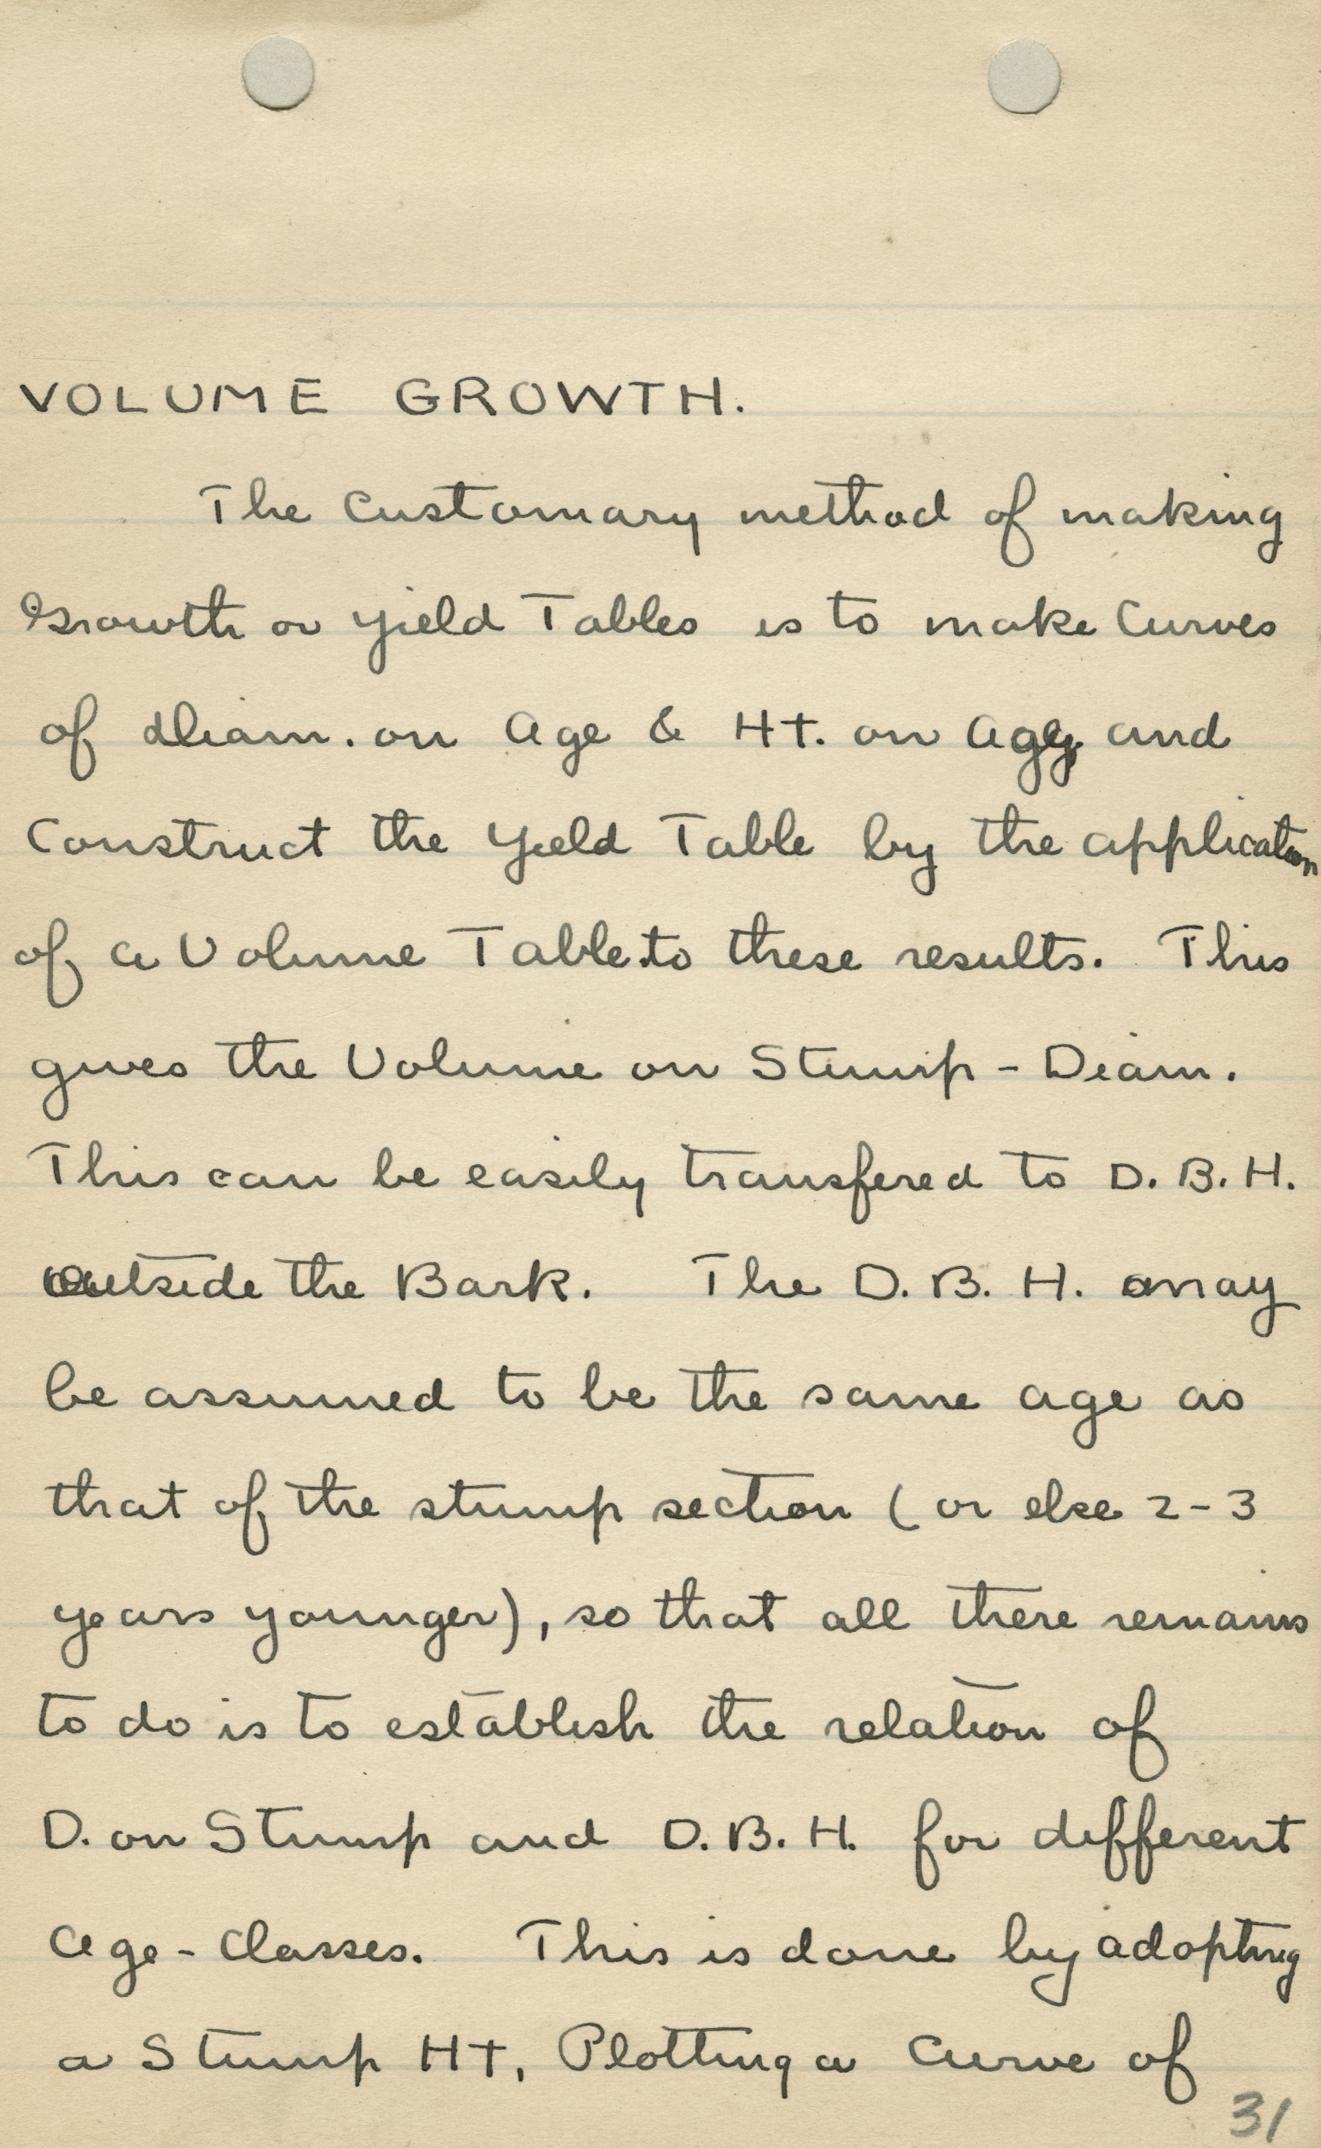 VOLUME GROWTH.
The Customary method of making
Growth or Yield Tables is to make Curves
of diam. on Age & Ht. on Age, and
Construct the Yield Table by the application
of a Volume Table to these results. This
gives the Volume on Stump - Diam.
This can be easily transfered to D. B. H.
outside the Bark. The D. B. H. may
be assumed to be the same age as
that of the stump section (or else 2-3
years younger), so that all there remains
to do is to establish the relation of
D. on Stump and D. B. H. for different
Age - Classes. This is done by adopting
a Stump Ht, Plotting a Curve of
31